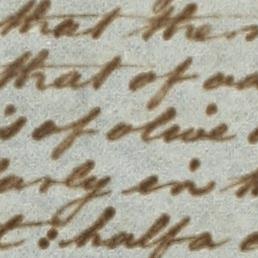 that the
that of
is of olive
early in
: halfa